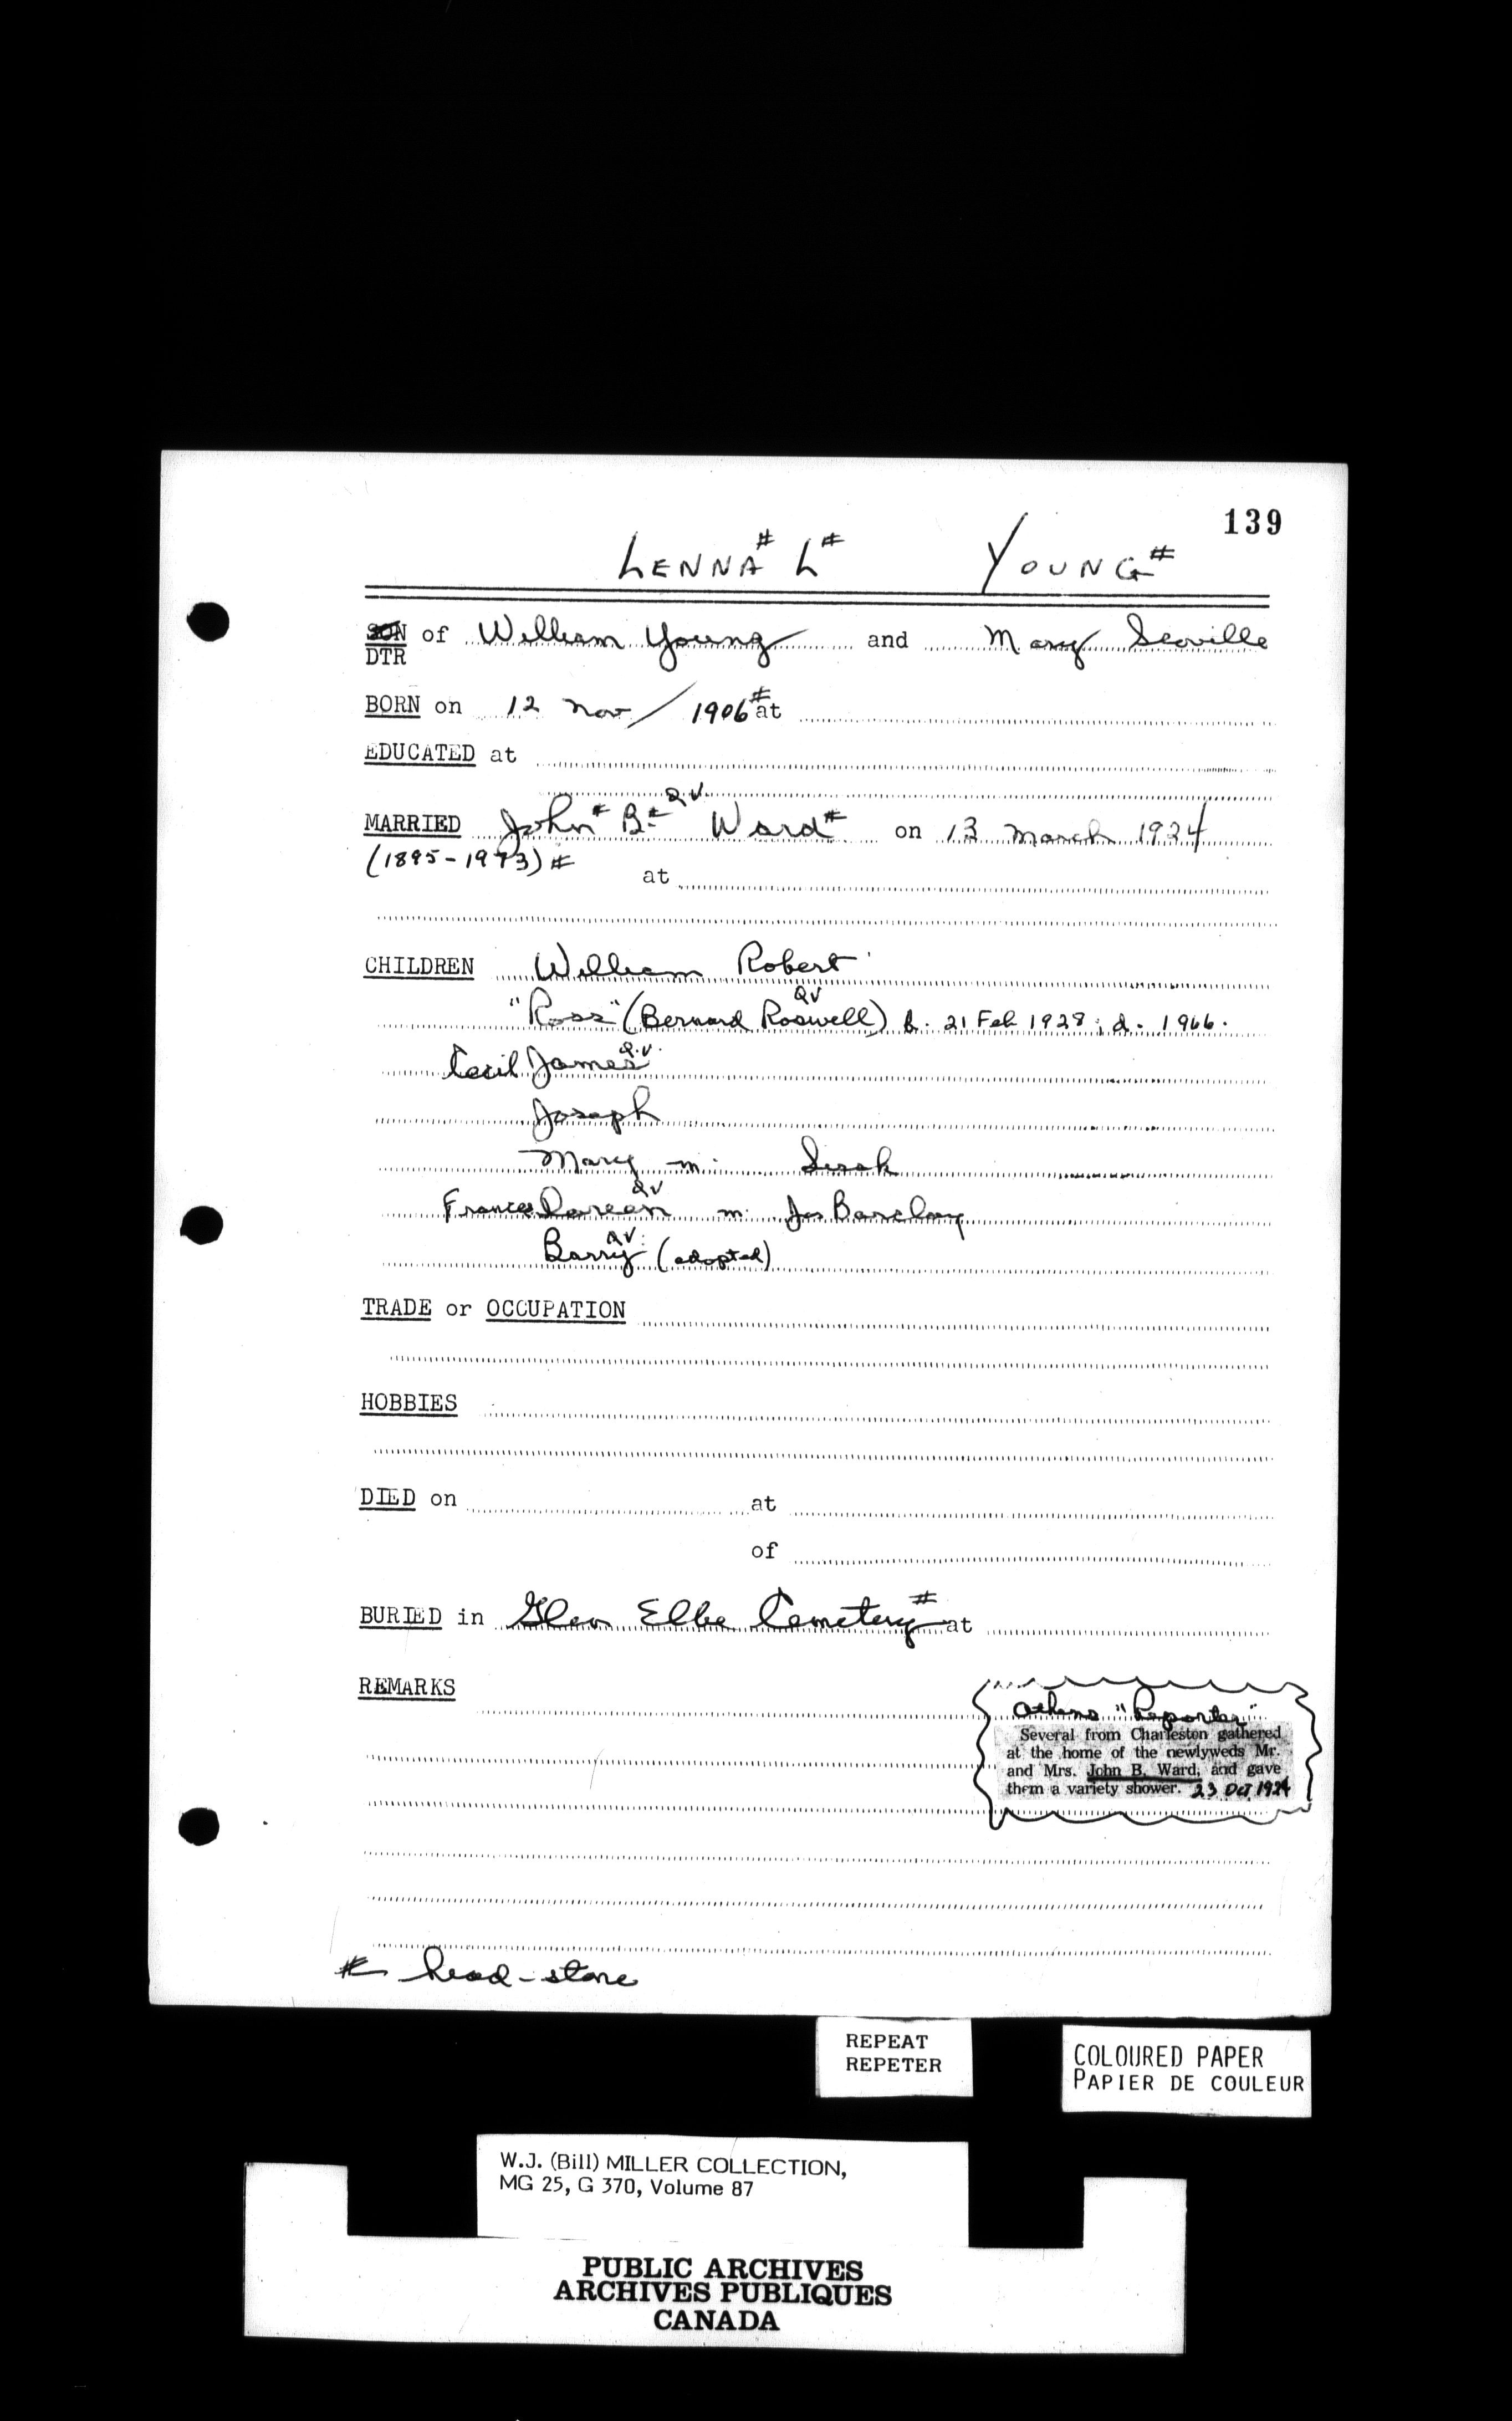 139
LENNA# L# YOUNG#
SON of William Young and Mary Scoville
DTR
BORN on 12 Nov / 1906# at
EDUCATED at
MARRIED John# B# Q.V. Ward# on 13 March 1924
(1895-1973)#
at
CHILDREN William Robert
"Ross" (Bernard Roswell) QV b. 21 Feb 1928; d. 1966.
Cecil James Q.V.
Joseph
Mary m.
Frances Doreen QV m. Jas Barclay
Barry QV. (adopted)
TRADE or OCCUPATION
HOBBIES
DIED on at
of
BURIED in Glen Elbe Cemetery# at
REMARKS
Athens "Reporter"
Several from Charleston gathered
at the home of the newlyweds Mr.
and Mrs. John B. Ward, and gave
them a variety shower. 23 Oct 1924
# head-stone
REPEAT
REPETER
COLOURED PAPER
PAPIER DE COULEUR
W.J. (Bill) MILLER COLLECTION,
MG 25, G 370, Volume 87
PUBLIC ARCHIVES
ARCHIVES PUBLIQUES
CANADA